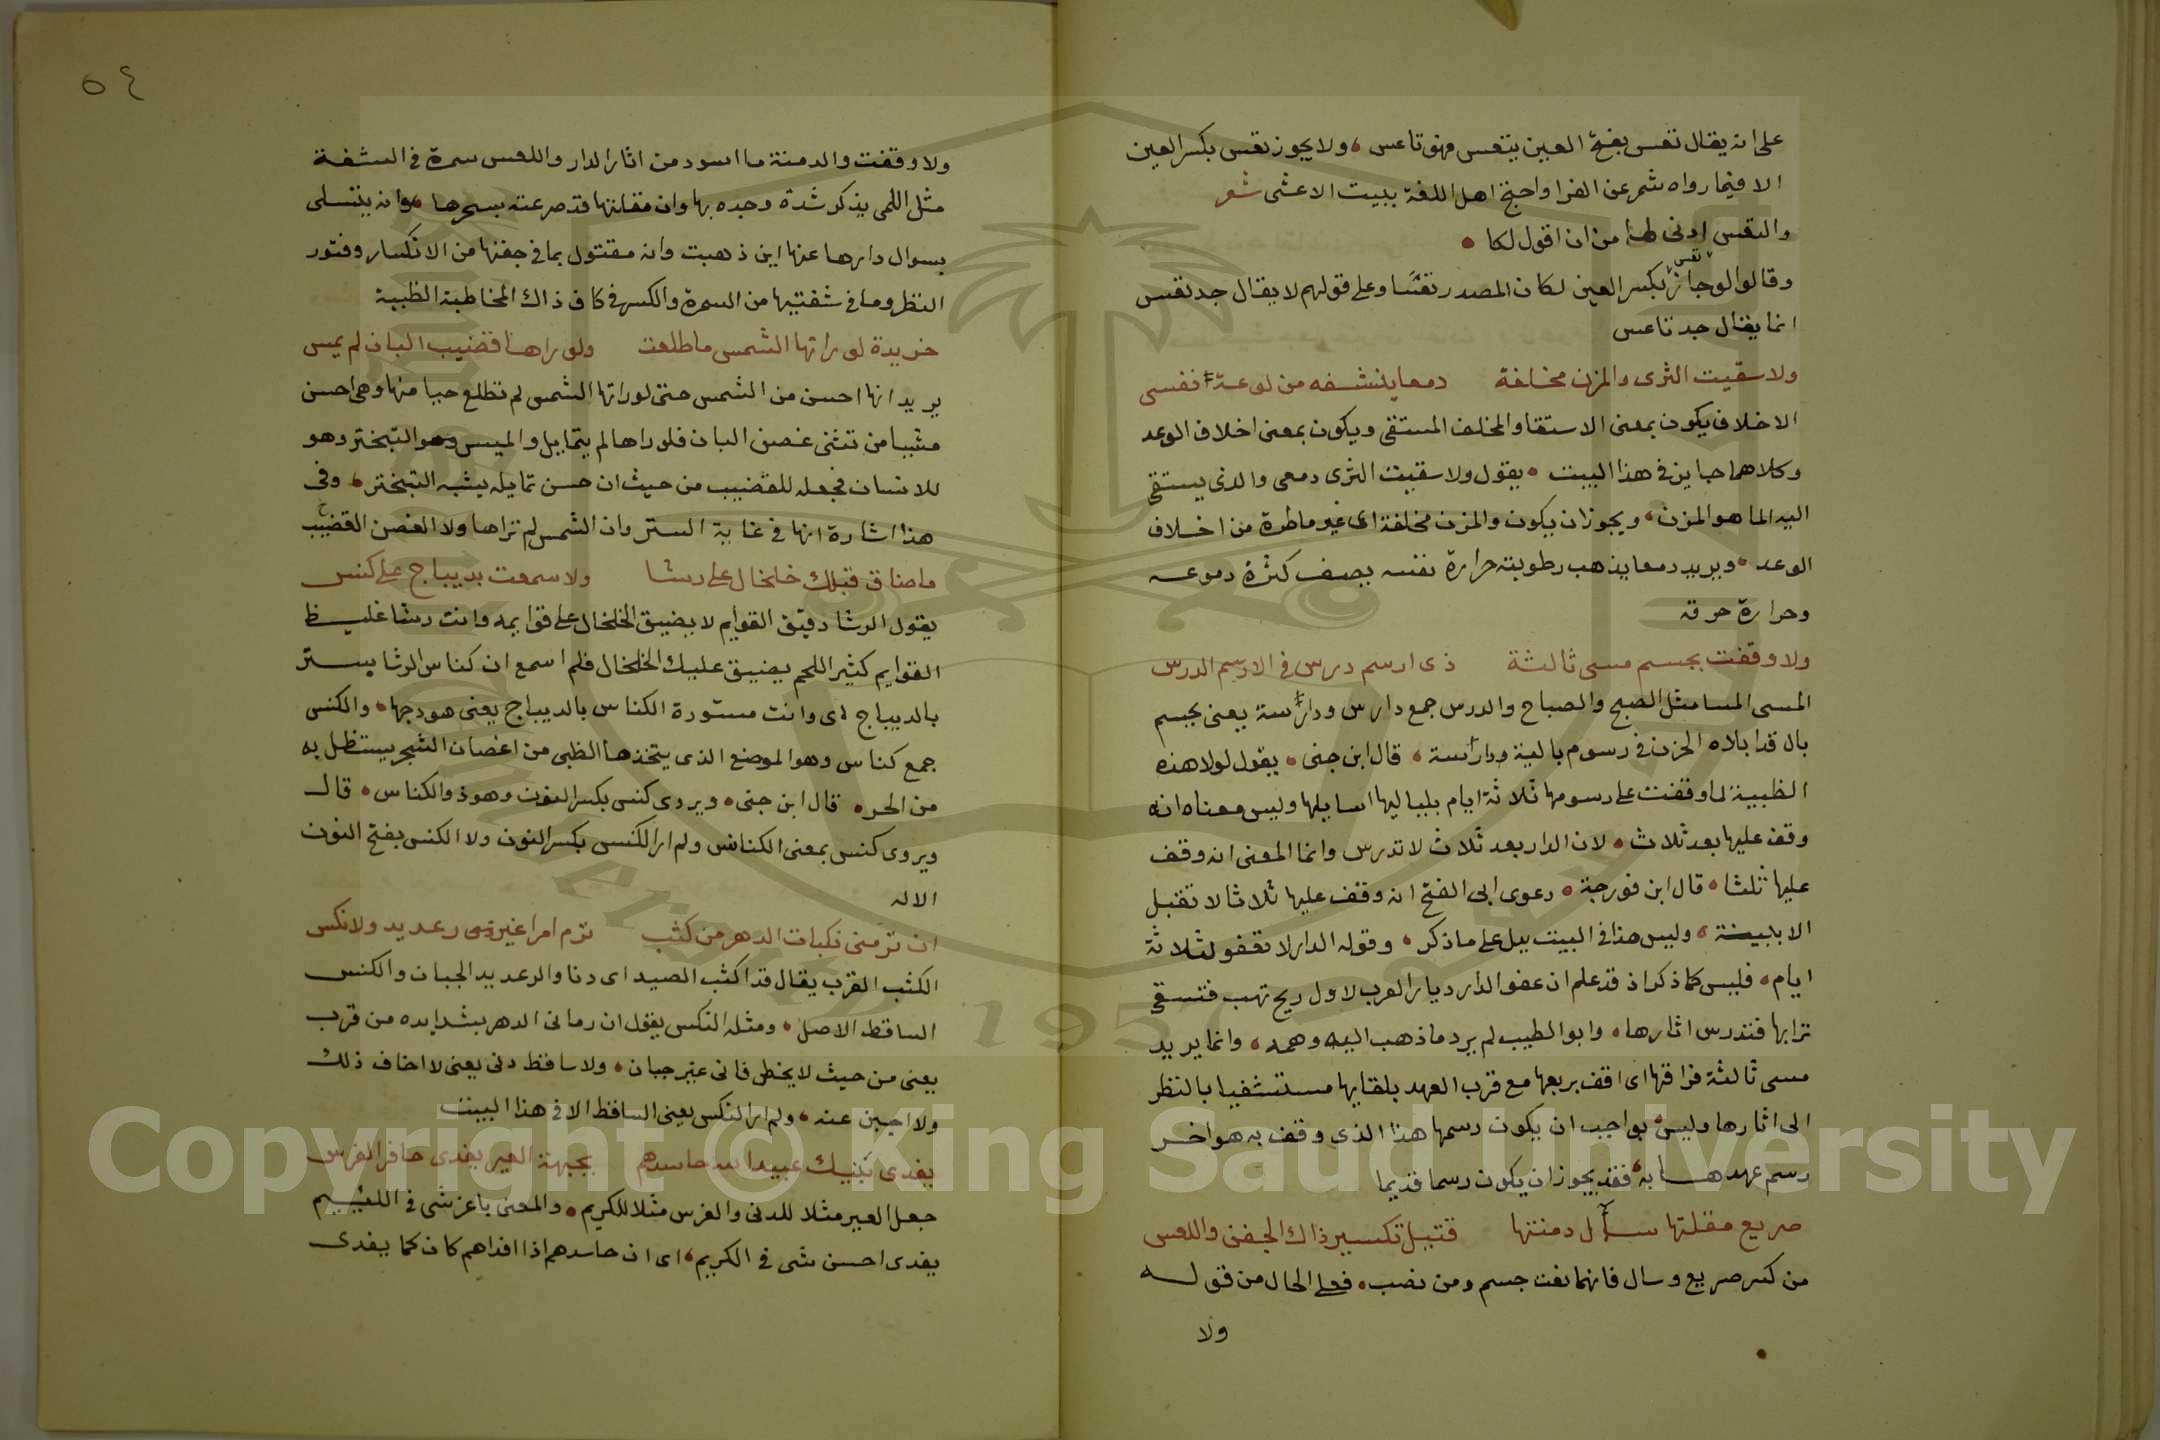 على انه يقال تعس بفتح العين يتعس فهو تاعس ، ولا يجوز تعس بكسر العين
الا فيما رواه شمر عن الفرا واحتج اهل اللغة ببيت الاعشى شعر
والتعس ادنى لها من ان اقول لكا
وقالوا لو جاز تعس بكسر العين لكان المصدر تعَسا وعلى قولهم لا يقال جد تعس
انما يقال جد تاعس
ولا سقيت الثرى والمزن مخلفة دمعا ينشفه من لوعة نفسى
الاخلاف يكون بمعنى الاستقا والمخلف المستقى ويكون بمعنى اخلاف الوعد
وكلاهما جاين فى هذا البيت . يقول ولا سقيت الثرى دمعى والذى يستقى
اليه الما هو المزن ، ويجوز ان يكون والمزن مخلفة اى غير ماطرة من اخلاف
الوعد . ويريد دمعا يذهب رطوبته حرارة نفسه يصف كثرة دموعه
وحرارة حرقه
ولا وقفت بجسم مسى ثالثة ذى ارسم درس فى الارسم الدرس
المسى المسا مثل الصبح والصباح والدرس جمع دارس ودارسة يعنى بجسم
بال قد ابلاه الحزن فى رسوم بالية ودارسة ، قال ابن جنى . يقول لولا هذه
الظبية لما وقفت على رسومها ثلاثة ايام بلياليها اسايلها وليس معناه انه
وقف عليها بعد ثلاث . لان الدار بعد ثلاث لا تدرس وانما المعنى انه وقف
عليها ثلثا . قال ابن فورجة . دعوى ابى الفتح انه وقف عليها ثلاثا لا تقبل
الا ببينة ، وليس هذا فى البيت بيل على ما ذكر ، وقوله الدار لا تقفو لثلاثة
ايام . فليس كما ذكر اذ قد علم ان عفو الدار ديار العرب لاول ريح تهب فتسقى
ترابها فتدرس اثارها . وابو الطيب لم يرد ما ذهب اليه وهمه ، وانما يريد
مسى ثالثة فراقها اى اقف بربعها مع قرب العهد بلقايها مستشفيا بالنظر
الى اثارها وليس بواجب ان يكون رسمها هذا الذى وقف به هو اخر
رسم عهدها به فقد يجوز ان يكون رسما قديما
صريع مقلتها سآل دمنتها قتيل تكسير ذاك الجفن واللعس
من كسر صريع وسال فانهما نعت جسم ومن نصب . فعلى الحال من قوله
ولا
٥٤
ولا وقفت والدمنة ما اسود من اثار الدار واللعس سمرة فى الشفة
مثل اللمى يذكر شدة وجده بها وان مقلتها قد صرعته بسحرها . وانه يتسلى
بسوال دارها عنها اين ذهبت وانه مقتول بما فى جفنها من الانكسار وفتور
النظر وما فى شفتيها من السمرة والكسر فى كاف ذاك المخاطبة الظبية
خريدة لو راتها الشمس ما طلعت ولو راها قضيب البان لم يمس
يريد انها احسن من الشمس حتى لو راتها الشمس لم تطلع حيا منها وهى احسن
مشيا من تثنى غصن البان فلو راها لم يتمايل والميس وهو التبختر وهو
للانسان فجعله للقضيب من حيث ان حسن تمايله يشبه التبختر ، وفى
هذا اشارة انها فى غاية الستر وان الشمس لم تراها ولا الغصن القضيب
ما ضاق قبلك خلخال على رشا ولا سمعت بديباج على كنس
يقول الرشا دقيق القوايم لا يضيق الخلخال على قوايمه وانت رشا غليظ
القوايم كثير اللحم يضيق عليك الخلخال فلم اسمع ان كناس الرشا يستر
بالديباج اى وانت مستورة الكناس بالديباج يعنى هودجها . والكنس
جمع كناس وهو الموضع الذى يتخذها الظبى من اغصان الشجر يستظل به
من الحر . قال ابن جنى . ويروى كنس بكسر النون وهو ذو الكناس . قال
ويروى كنس بمعنى الكناس ولم ار الكنس بكسر النون ولا الكنس بفتح النون
الا له
ان ترمنى نكبات الدهر من كثب ترم امرا غير رعديد ولا نكس
الكثب القرب يقال قد اكثب الصيد اى دنا والرعديد الجبان والكنس
الساقط الاصل . ومثله النكس يقول ان رمانى الدهر بشدايده من قرب
يعنى من حيث لا يخطى فانى غير جبان . ولا ساقط دنى يعنى لا اخاف ذلك
ولا اجبن عنه ، ولم ار النكس يعنى الساقط الا فى هذا البيت
يفدى بنيك عبيد الله حاسدهم بجبهة العير يفدى حافر الفرس
جعل العير مثلا للدنى والفرس مثلا للكريم . والمعنى باعز شى فى اللئيم
يفدى احسن شى فى الكريم ، اى ان حاسدهم اذا افداهم كان كما يفدى
Copyright © King Saud University
1957